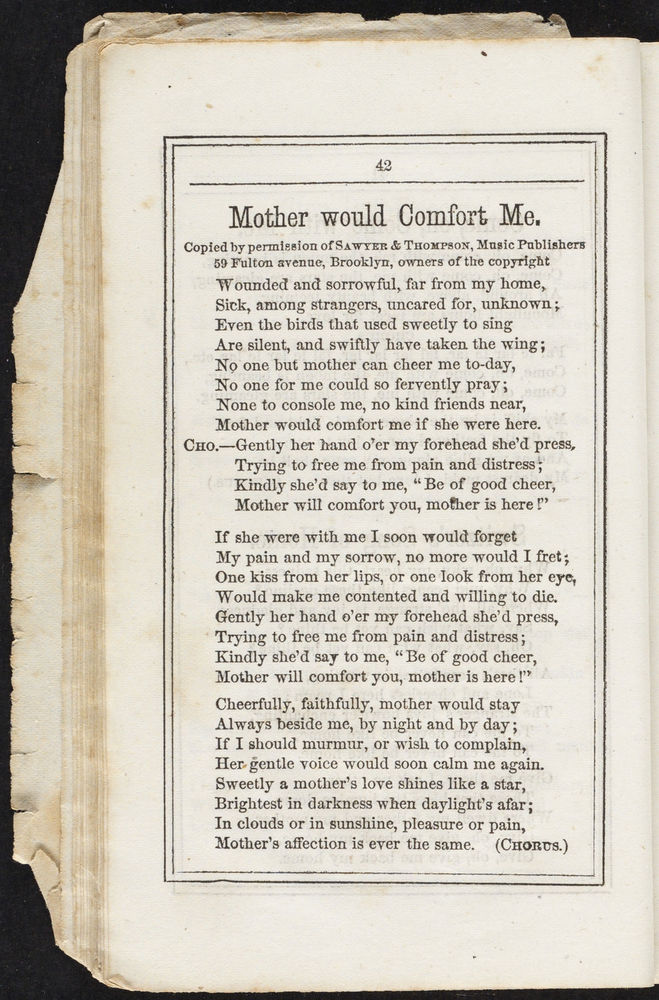 42
Mother would Comfort Me.
Copied by permission of SAWYER & THOMPSON, Music Publishers
59 Fulton avenue, Brooklyn, owners of the copyright
Wounded and sorrowful, far from my home,
Sick, among strangers, uncared for, unknown;
Even the birds that used sweetly to sing
Are silent, and swiftly have taken the wing;
No one but mother can cheer me to-day,
No one for me could so fervently pray;
None to console me, no kind friends near,
Mother would comfort me if she were here.
CHO.—Gently her hand o'er my forehead she'd press,
Trying to free me from pain and distress;
Kindly she'd say to me, “Be of good cheer,
Mother will comfort you, mother is here!”
If she were with me I soon would forget
My pain and my sorrow, no more would I fret;
One kiss from her lips, or one look from her eye,
Would make me contented and willing to die.
Gently her hand o'er my forehead she'd press,
Trying to free me from pain and distress;
Kindly she'd say to me, “Be of good cheer,
Mother will comfort you, mother is here!”
Cheerfully, faithfully, mother would stay
Always beside me, by night and by day;
If I should murmur, or wish to complain,
Her gentle voice would soon calm me again.
Sweetly a mother's love shines like a star,
Brightest in darkness when daylight's afar;
In clouds or in sunshine, pleasure or pain,
Mother's affection is ever the same. (CHORUS.)